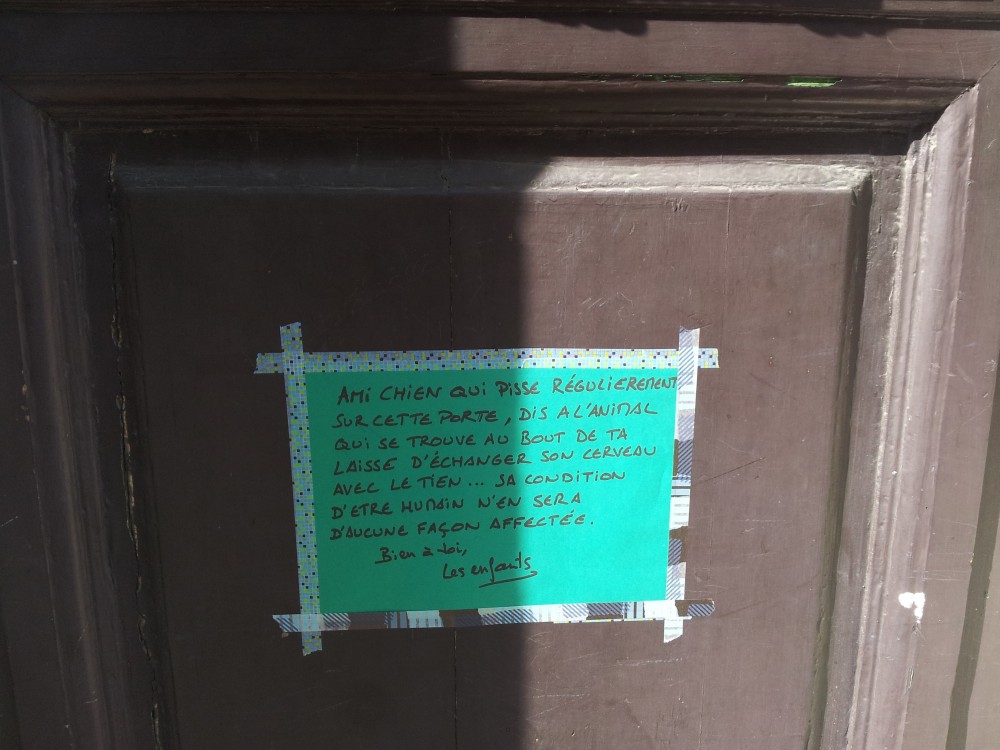 AMI CHIEN QUI PISSE RÉGULIEREMENT
SUR CETTE PORTE, DIS A L'ANIMAL
QUI SE TROUVE AU BOUT DE TA
LAISSE D'ÉCHANGER SON CERVEAU
AVEC LE TIEN... SA CONDITION
D'ETRE HUMAIN N'EN SERA
D'AUCUNE FAÇON AFFECTÉE.
Bien à toi,
Les enfants